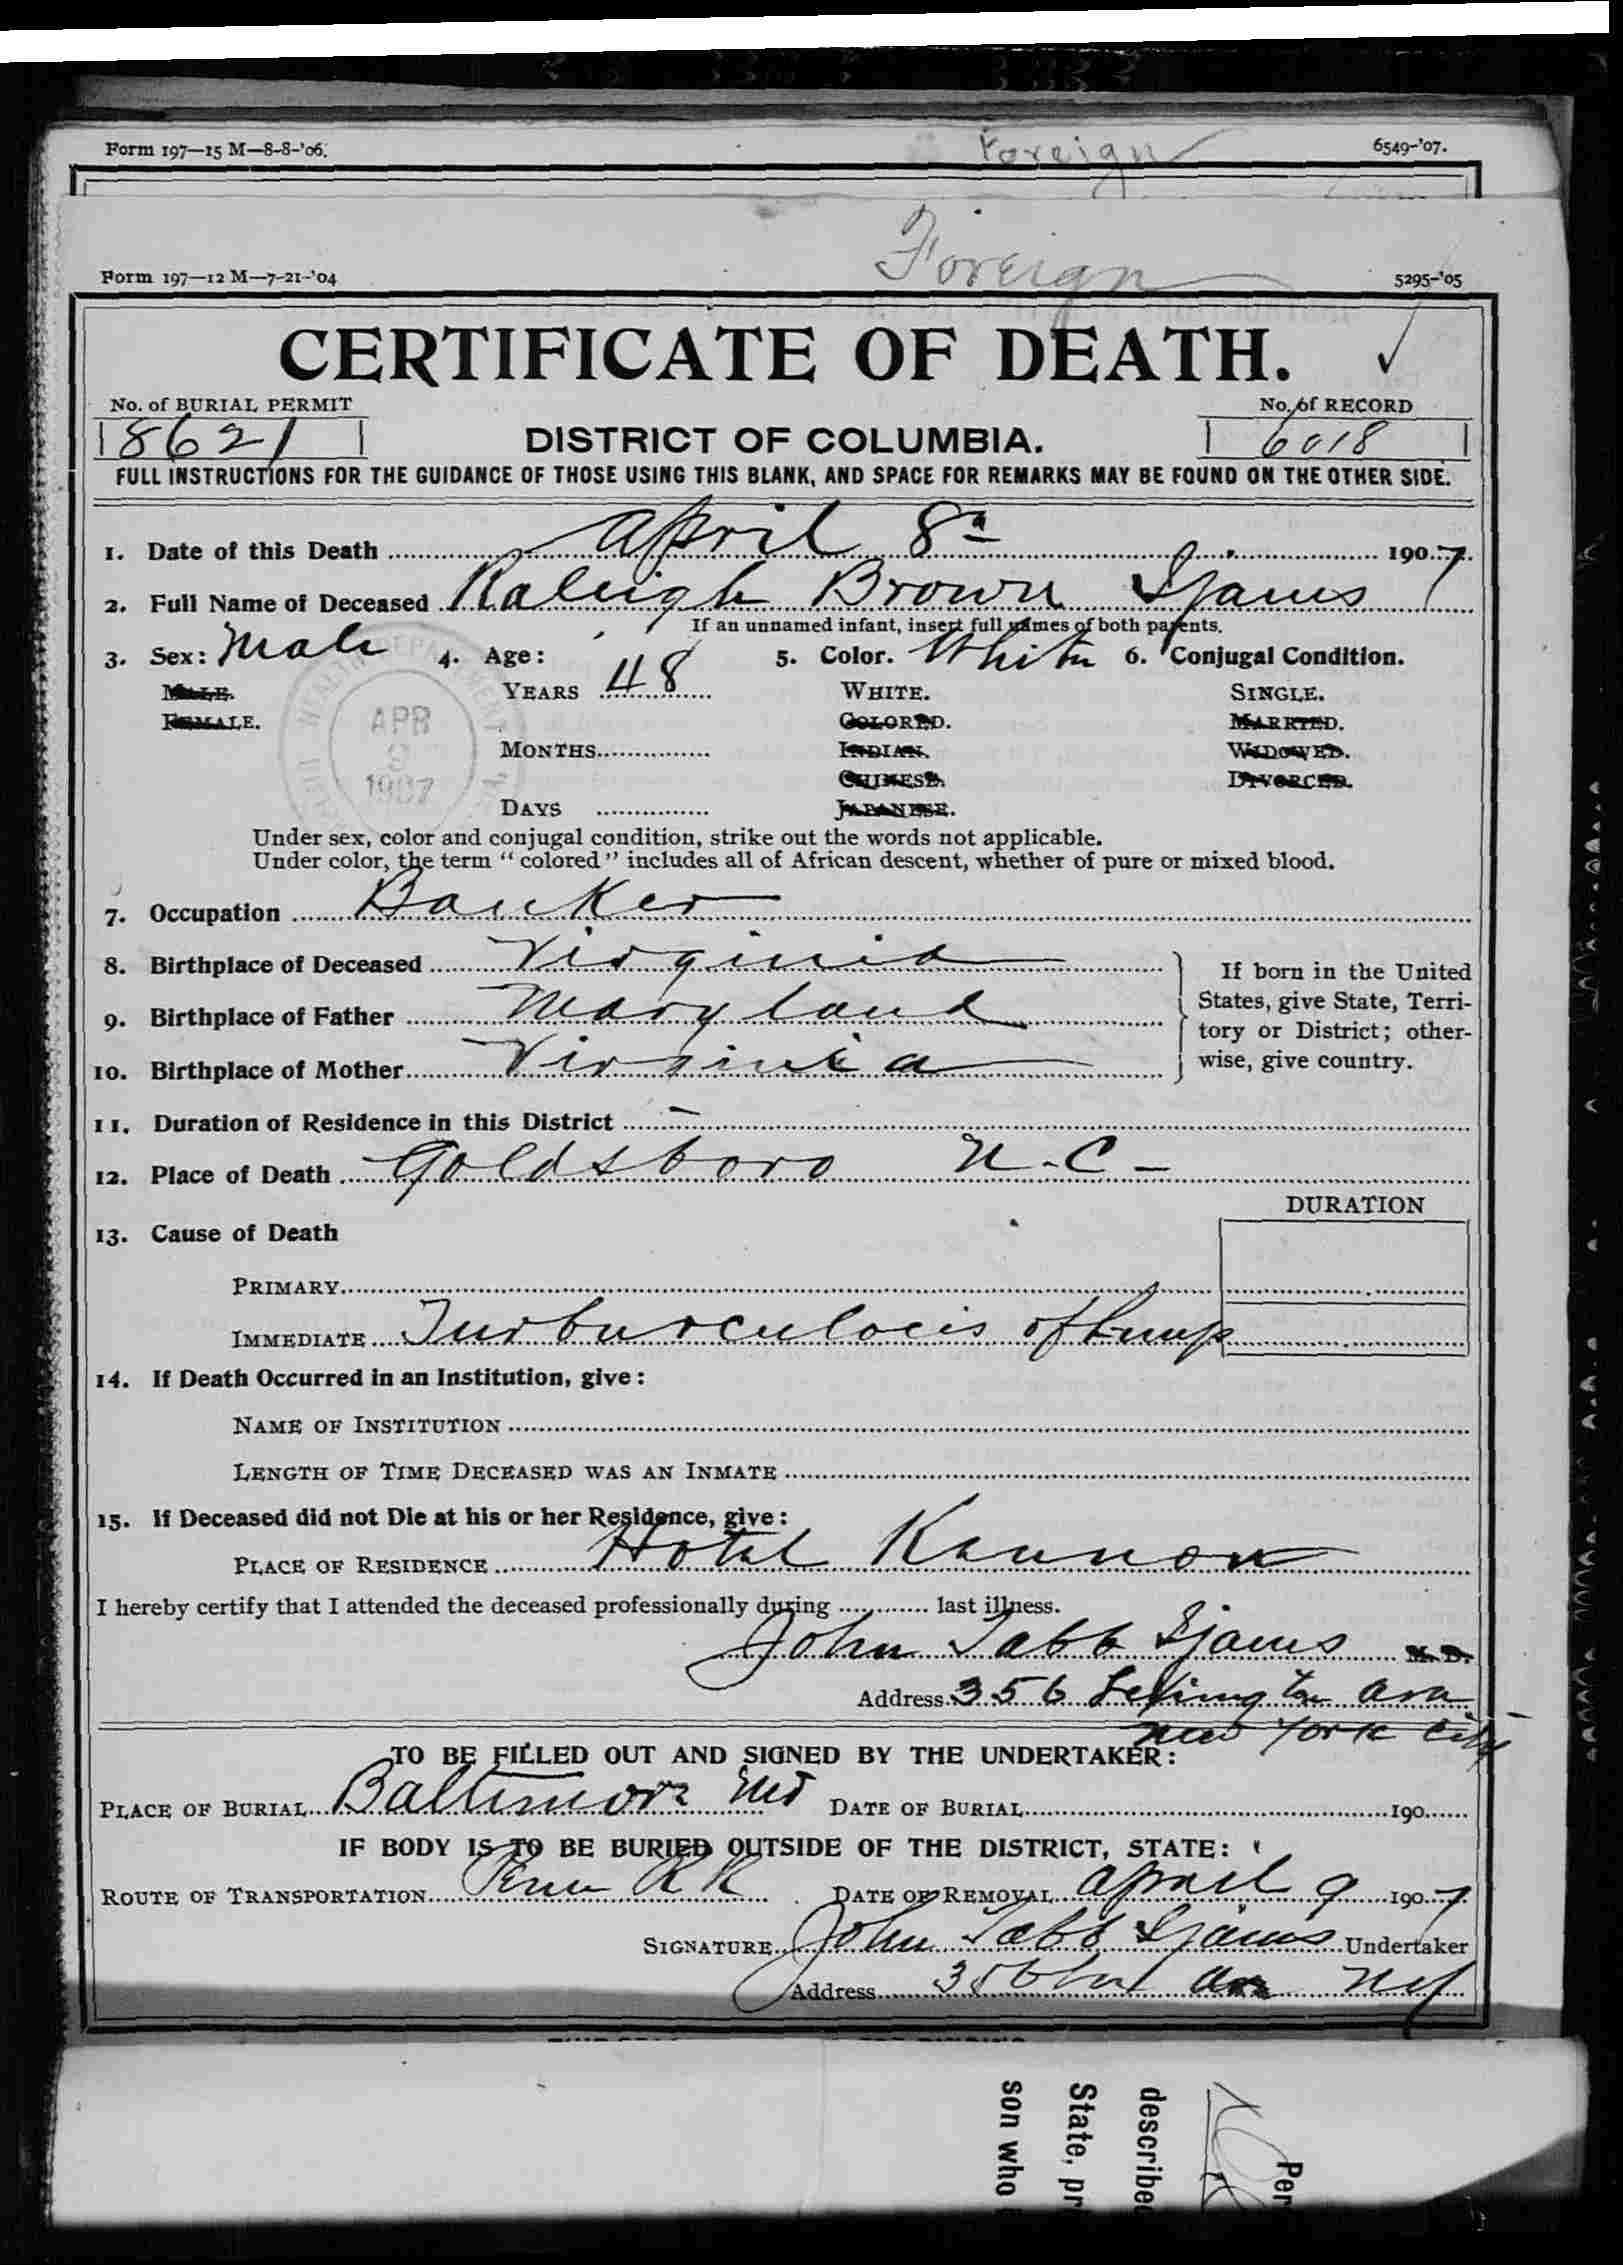 Form 197—15 M—8-8-'06.
Foreign
6549-'07.
Foreign
Form 197—12 M—7-21-'04
5295-'05
CERTIFICATE OF DEATH.
No. of BURIAL PERMIT
No. of RECORD
18621
DISTRICT OF COLUMBIA.
6018
FULL INSTRUCTIONS FOR THE GUIDANCE OF THOSE USING THIS BLANK, AND SPACE FOR REMARKS MAY BE FOUND ON THE OTHER SIDE.
1. Date of this Death April 8 1907.
2. Full Name of Deceased Raleigh Brown Ijams
If an unnamed infant, insert full names of both parents.
3. Sex: Male 4. Age: 5. Color. White 6. Conjugal Condition.
MALE. YEARS 48 WHITE. SINGLE.
FEMALE. COLORED. MARRIED.
MONTHS INDIAN. WIDOWED.
CHINESE. DIVORCED.
DAYS JAPANESE.
HEALTH DEPARTMENT
APR
9
1907
Under sex, color and conjugal condition, strike out the words not applicable.
Under color, the term "colored" includes all of African descent, whether of pure or mixed blood.
7. Occupation Banker
8. Birthplace of Deceased Virginia
9. Birthplace of Father Maryland
10. Birthplace of Mother Virginia
If born in the United
States, give State, Terri-
tory or District; other-
wise, give country.
11. Duration of Residence in this District —
12. Place of Death Goldsboro N.C—
DURATION
13. Cause of Death
PRIMARY
IMMEDIATE Turburculocis of Lungs
14. If Death Occurred in an Institution, give:
NAME OF INSTITUTION
LENGTH OF TIME DECEASED WAS AN INMATE
15. If Deceased did not Die at his or her Residence, give:
PLACE OF RESIDENCE Hotel Kennon
I hereby certify that I attended the deceased professionally during last illness.
John Tabb Ijams M. D.
Address 356 Lexington Ave
New York City
TO BE FILLED OUT AND SIGNED BY THE UNDERTAKER:
PLACE OF BURIAL Baltimore Md DATE OF BURIAL 190
IF BODY IS TO BE BURIED OUTSIDE OF THE DISTRICT, STATE:
ROUTE OF TRANSPORTATION Penn RR DATE OF REMOVAL April 9 1907
SIGNATURE John Tabb Ijams Undertaker
Address 356 Ave NY
Per
describe
State, pr
son who